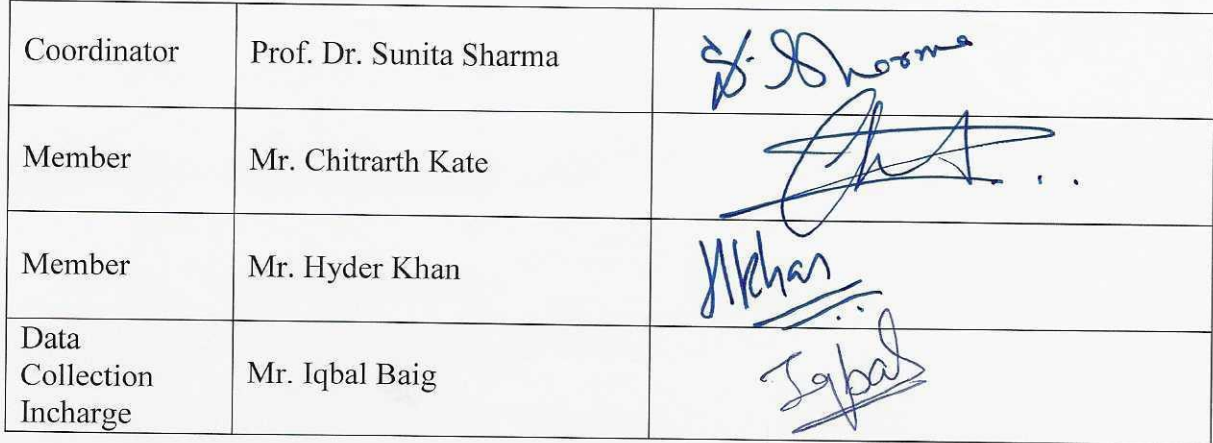 Coordinator Prof. Dr. Sunita Sharma S. Sharma
Member Mr. Chitrarth Kate
Member Mr. Hyder Khan HKhan
Data
Collection
Incharge
Mr. Iqbal Baig Iqbal